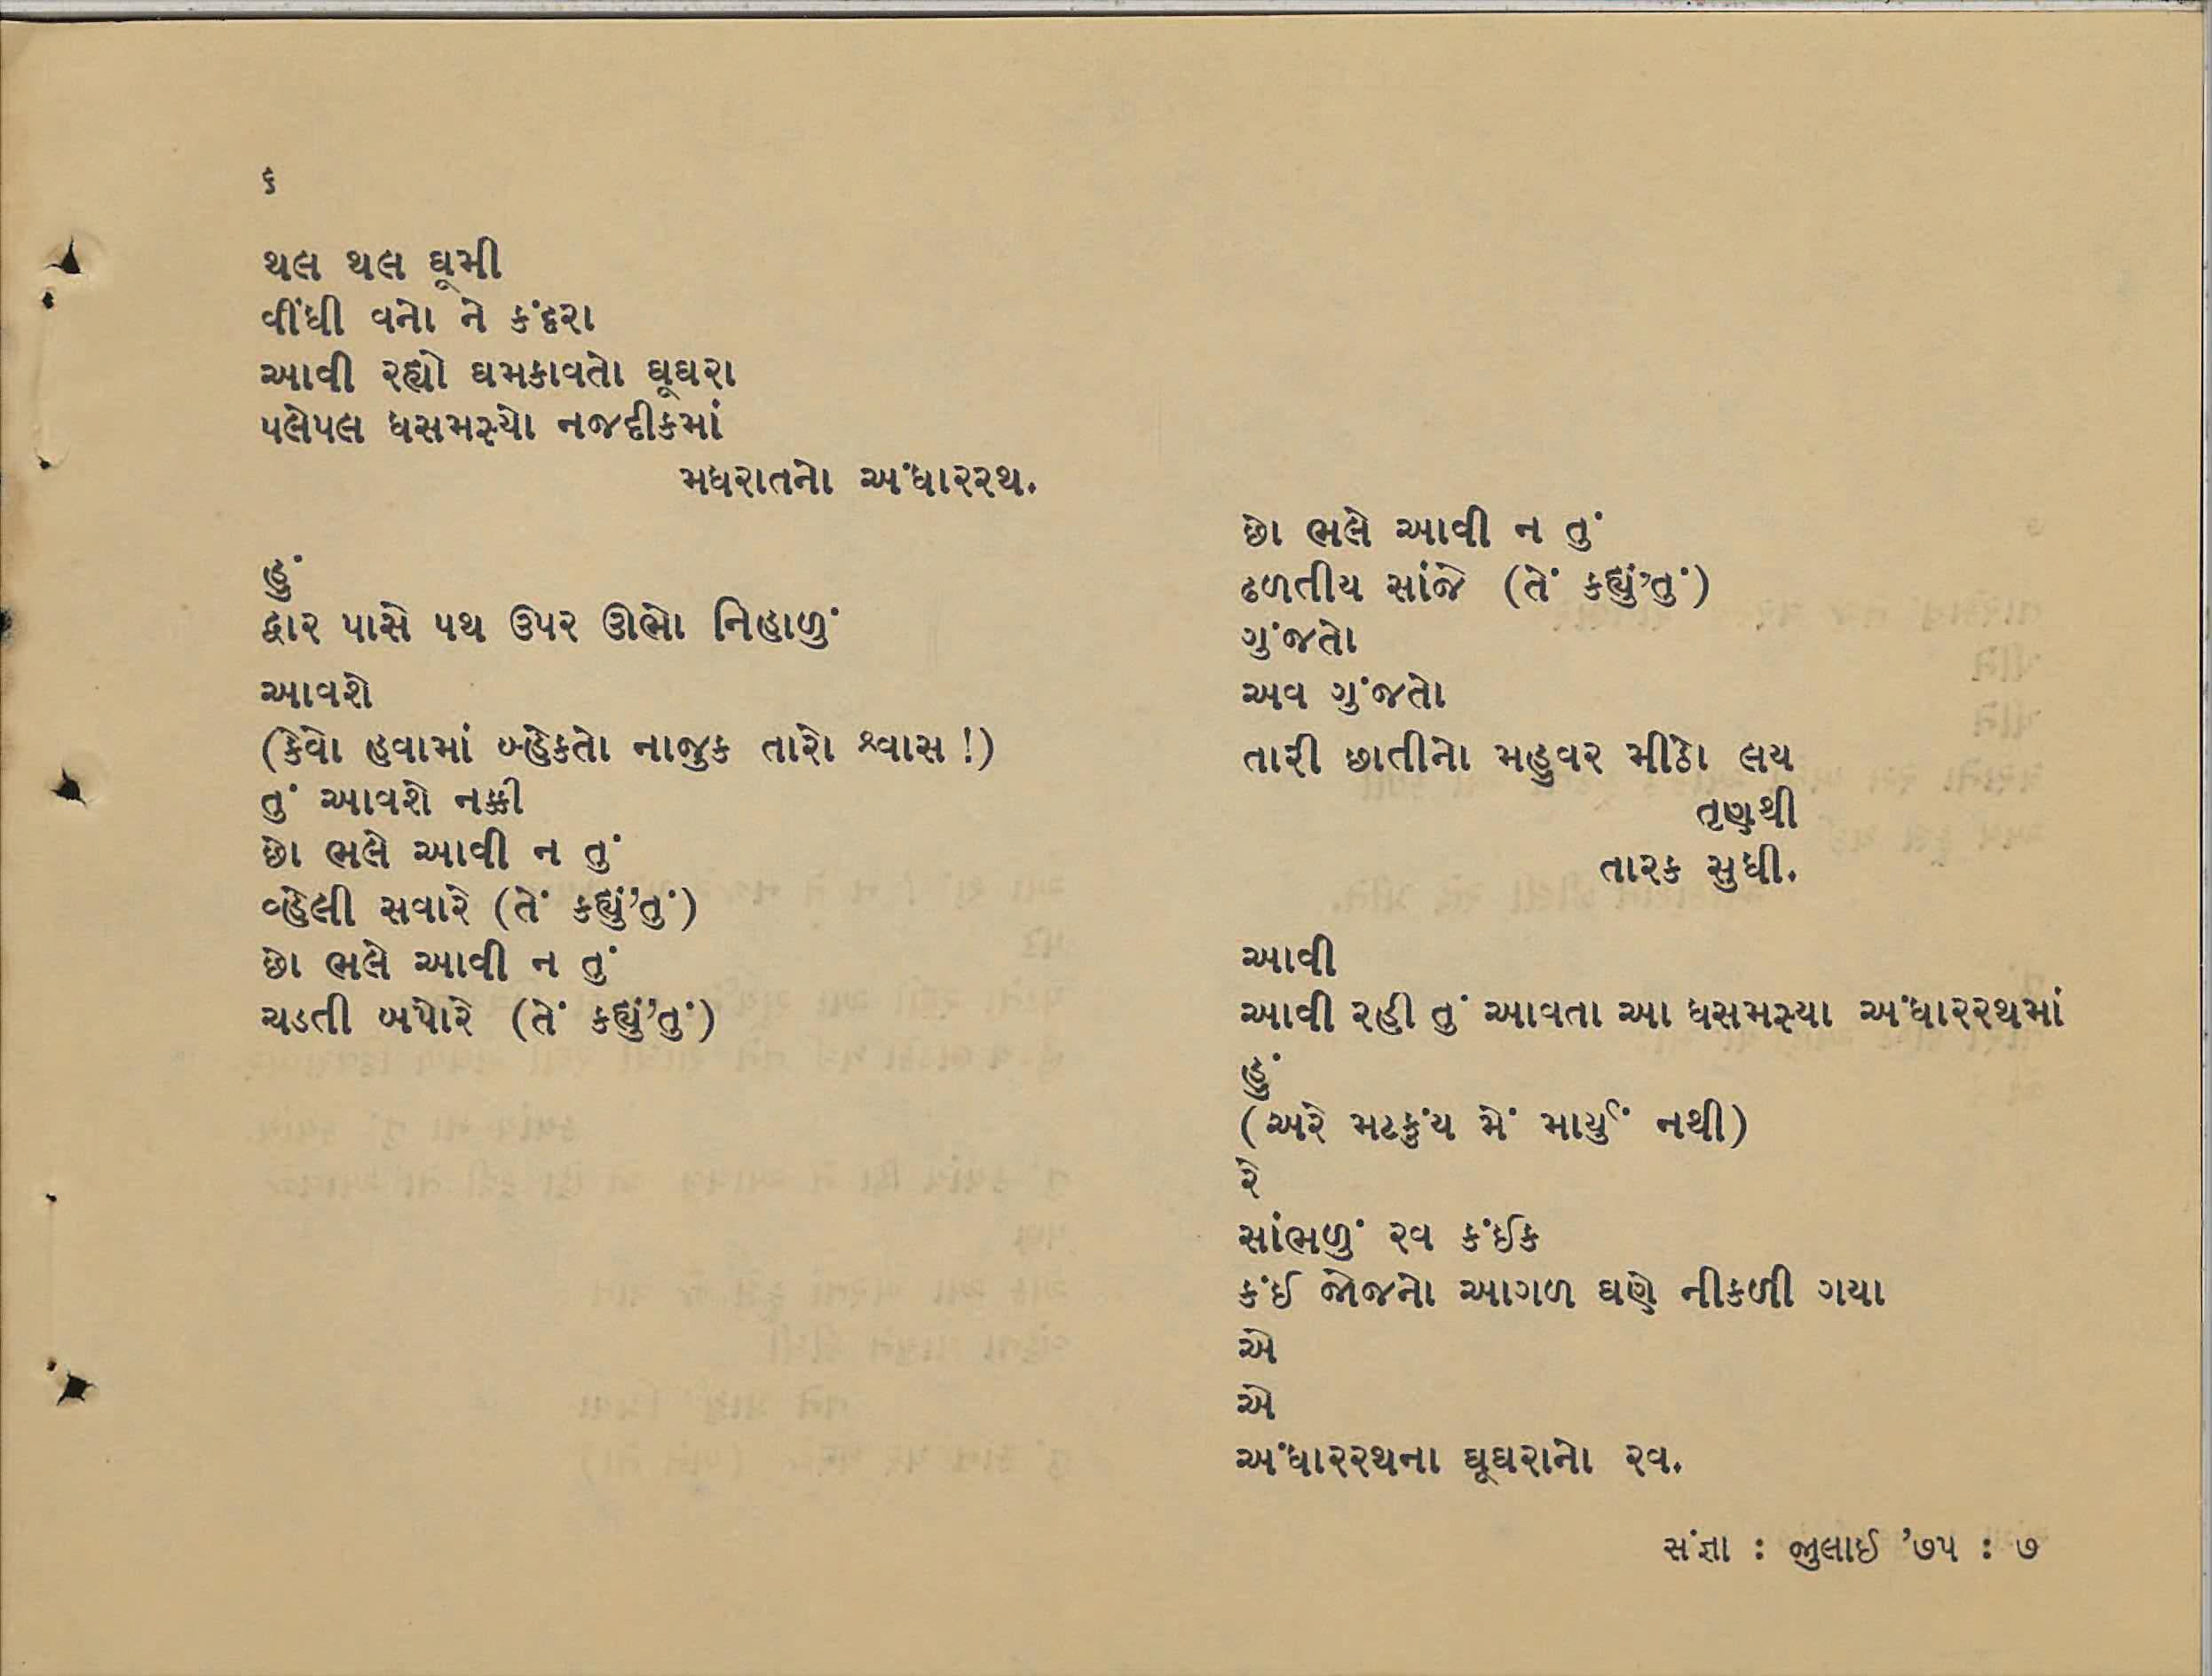 ૬
થલ થલ ઘૂમી
વીંધી વનો ને કંદરા
આવી રહ્યો ઘમકાવતો ઘૂઘરા
પલેપલ ધસમસ્યો નજદીકમાં
મધરાતનો અંધારરથ.
હું
દ્વાર પાસે પથ ઉપર ઊભો નિહાળું
આવશે
(કેવો હવામાં બ્હેકતો નાજુક તારો શ્વાસ !)
તું આવશે નક્કી
છો ભલે આવી ન તું
વ્હેલી સવારે (તેં કહ્યું'તું)
છો ભલે આવી ન તું
ચડતી બપોરે (તેં કહ્યું'તું)
છો ભલે આવી ન તું
ઢળતીય સાંજે (તેં કહ્યું'તું)
ગુંજતો
અવ ગુંજતો
તારી છાતીનો મહુવર મીઠો લય
તૃણથી
તારક સુધી.
આવી
આવી રહી તું આવતા આ ધસમસ્યા અંધારરથમાં
હું
(અરે મટકુંય મેં માર્યું નથી)
રે
સાંભળું રવ કંઈક
કંઈ જોજનો આગળ ઘણે નીકળી ગયા
એ
એ
અંધારરથના ઘૂઘરાનો રવ.
સંજ્ઞા : જુલાઈ '૭૫ : ૭